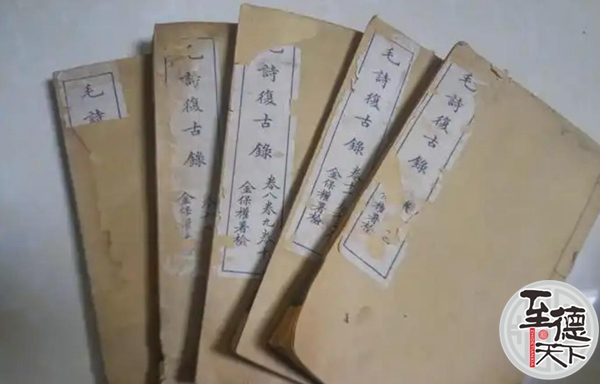 毛詩
毛詩復古錄
金保權
毛詩復古錄
卷八卷九卷十
金保權署檢
毛詩復古錄
金保權署檢
毛詩復古錄
權署檢
至德天下